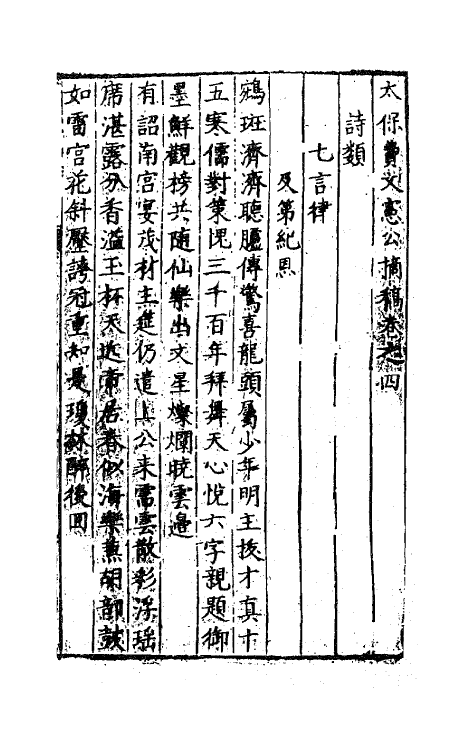 太保費文憲公摘稿卷之四
詩類
七言律
及第紀恩
鵷班濟濟聽臚傳驚喜龍頭屬少年明主掄才真十
五寒儒對策愧三千百年拜舞天心悅六字親題御
墨鮮觀榜共隨仙樂出文星燦爛曉雲邊
有詔南宮宴茂材主筵仍遣上公來需雲散彩浮瑤
席湛露分香溢玉杯天近帝居春似海樂兼胡部鼓
如雷宮花斜壓誇冠重知是瓊林醉後回